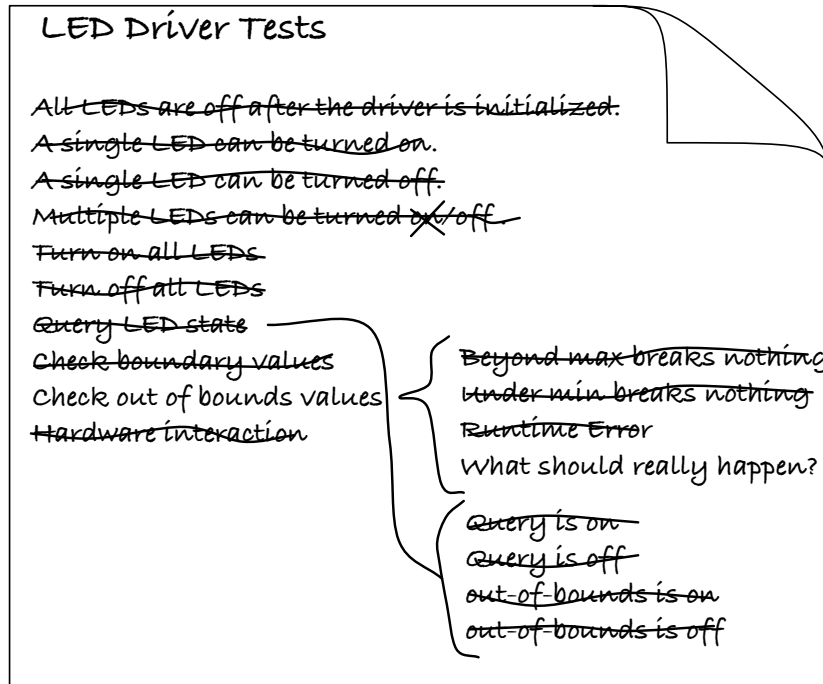 LED Driver Tests
All LEDs are off after the driver is initialized.
A single LED can be turned on.
A single LED can be turned off.
Multiple LEDs can be turned on/off.
Turn on all LEDs
Turn off all LEDs
Query LED state
Check boundary values
Check out of bounds values
Hardware interaction
Beyond max breaks nothing
Under min breaks nothing
Runtime Error
What should really happen?
Query is on
Query is off
out-of-bounds is on
out-of-bounds is off